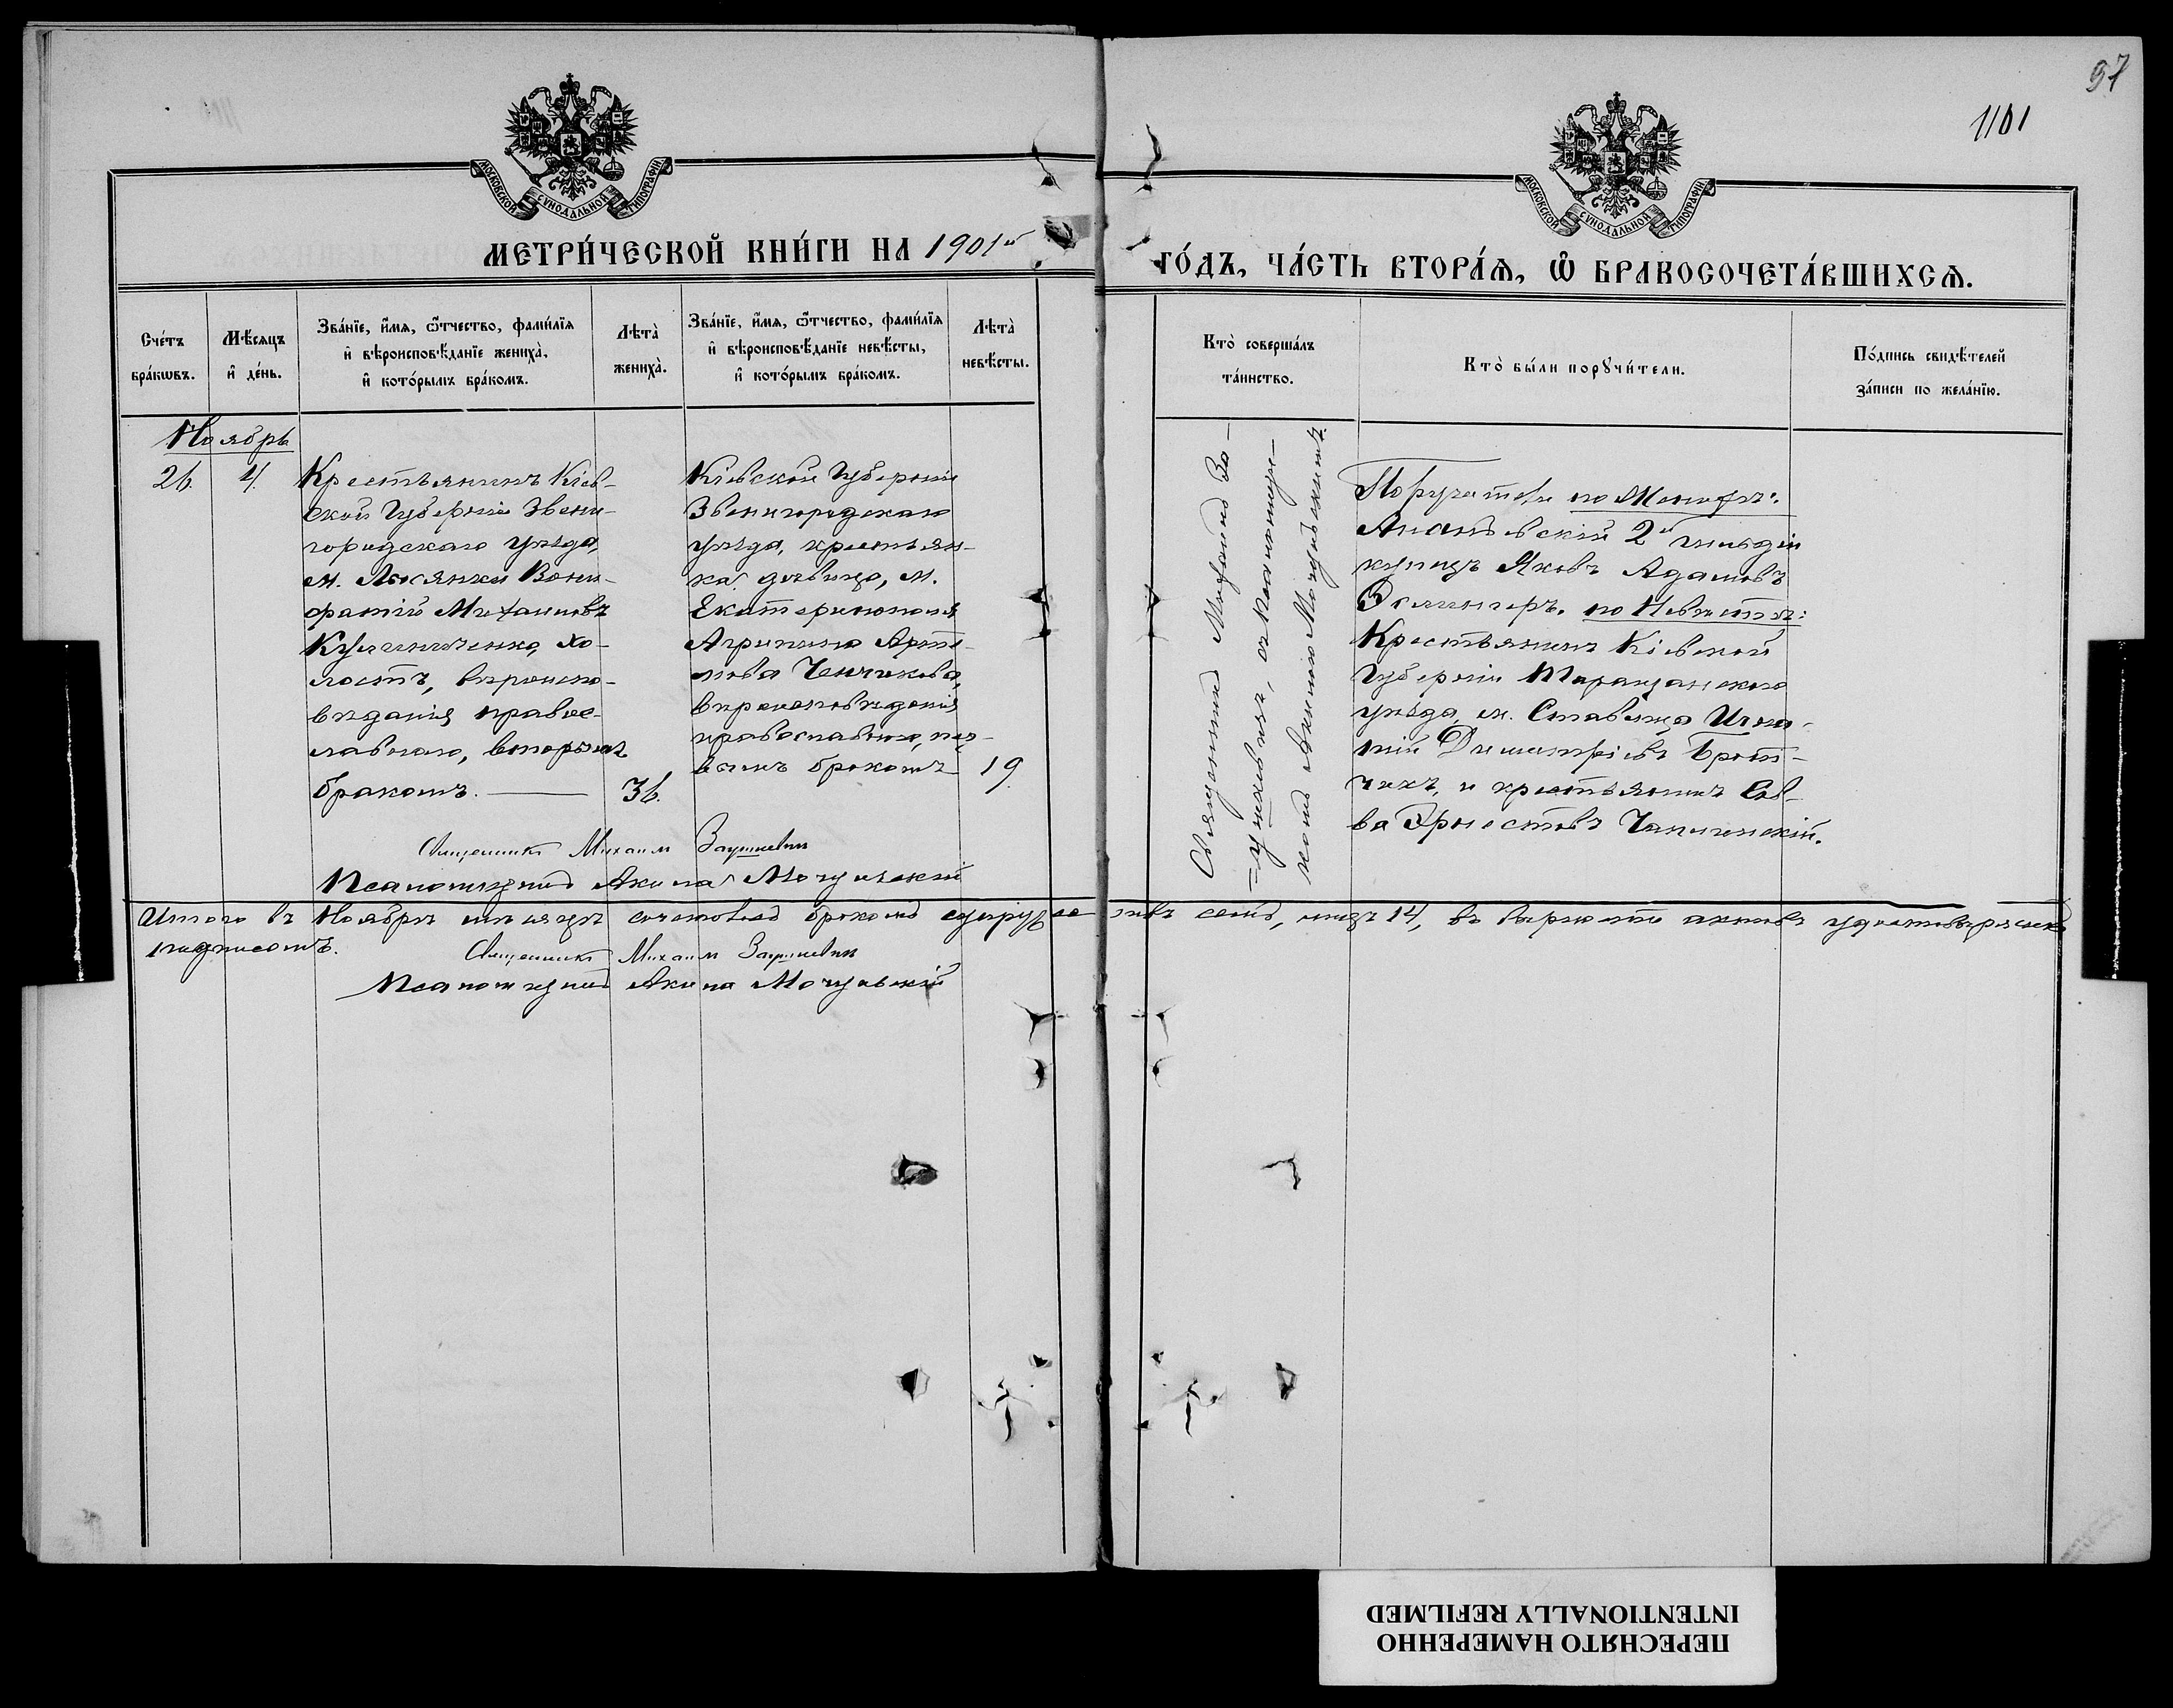 97
1101
МОСКОВСКОЙ СУНОДАЛЬНОЙ ТИПОГРАФІИ
МОСКОВСКОЙ СУНОДАЛЬНОЙ ТИПОГРАФІИ
МЕТРИ́ЧЕСКОЙ КНИ́ГИ НА 1901й
ГО́ДЪ, ЧА́СТЬ ВТОРА́Ѧ, Ѽ БРАКОСОЧЕТА́ВШИХСѦ.
Сче́тъ
бра́кѡвъ.
Мѣ́сяцъ
и҆ де́нь.
Зва́нїе, и҆́мѧ, ѻ҆́тчество, фами́лїѧ
и҆ вѣроисповѣ́данїе жениха̀,
и҆ кото́рымъ бра́комъ.
Лѣта̀
жениха̀.
Зва́нїе, и҆́мѧ, ѻ҆́тчество, фами́лїѧ
и҆ вѣроисповѣ́данїе невѣ́сты,
и҆ кото́рымъ бра́комъ.
Лѣта̀
невѣ́сты.
Кто̀ соверша́лъ
та́инство.
Кто̀ бы́ли порꙋчи́тели.
По́дпись свидѣ́телей
за́писи по жела́нїю.
Ноябрь
26.
4.
Крестьянинъ Кіев-
ской Губерніи Звени-
городскаго уѣзда,
м. Лысянки Вони-
фатій Михаиловъ
хо-
лостъ, вѣроиспо-
вѣданія правос-
лавнаго, вторымъ
бракомъ.
36.
Кіевской Губерніи
Звенигородскаго
уѣзда, крестьян-
ка дѣвица, м.
Екатеринополя
Агрипина Арте-
мова
вѣроисповѣданія
православнаго, пер-
вымъ бракомъ
19.
Священникъ Михаилъ За-
=ушкевичъ, съ псаломщи-
комъ Акилою Мочульскимъ.
Поручители по Женихѣ:
Ананьевскій 2й гильдіи
купецъ Яковъ Адамовъ
по Невѣстѣ:
Крестьянинъ Кіевской
Губерніи Таращанскаго
уѣзда, м. Ставища Игна-
тій Димитріевъ
и крестьянинъ Сав-
ва
Священникъ Михаилъ Заушкевичъ
Псаломщикъ Акила Мочульскій
Итого въ Ноябрѣ мѣсяцѣ сочетовсь бракомъ супруже-ствъ семь, лицъ 14, въ вѣрности актовъ удостовѣряемъ
подписомъ.
Священникъ Михаилъ Заушкевичъ
Псаломщикъ Акила Мочульскій
ПЕРЕСНЯТО НАМЕРЕННО
INTENTIONALLY REFILMED